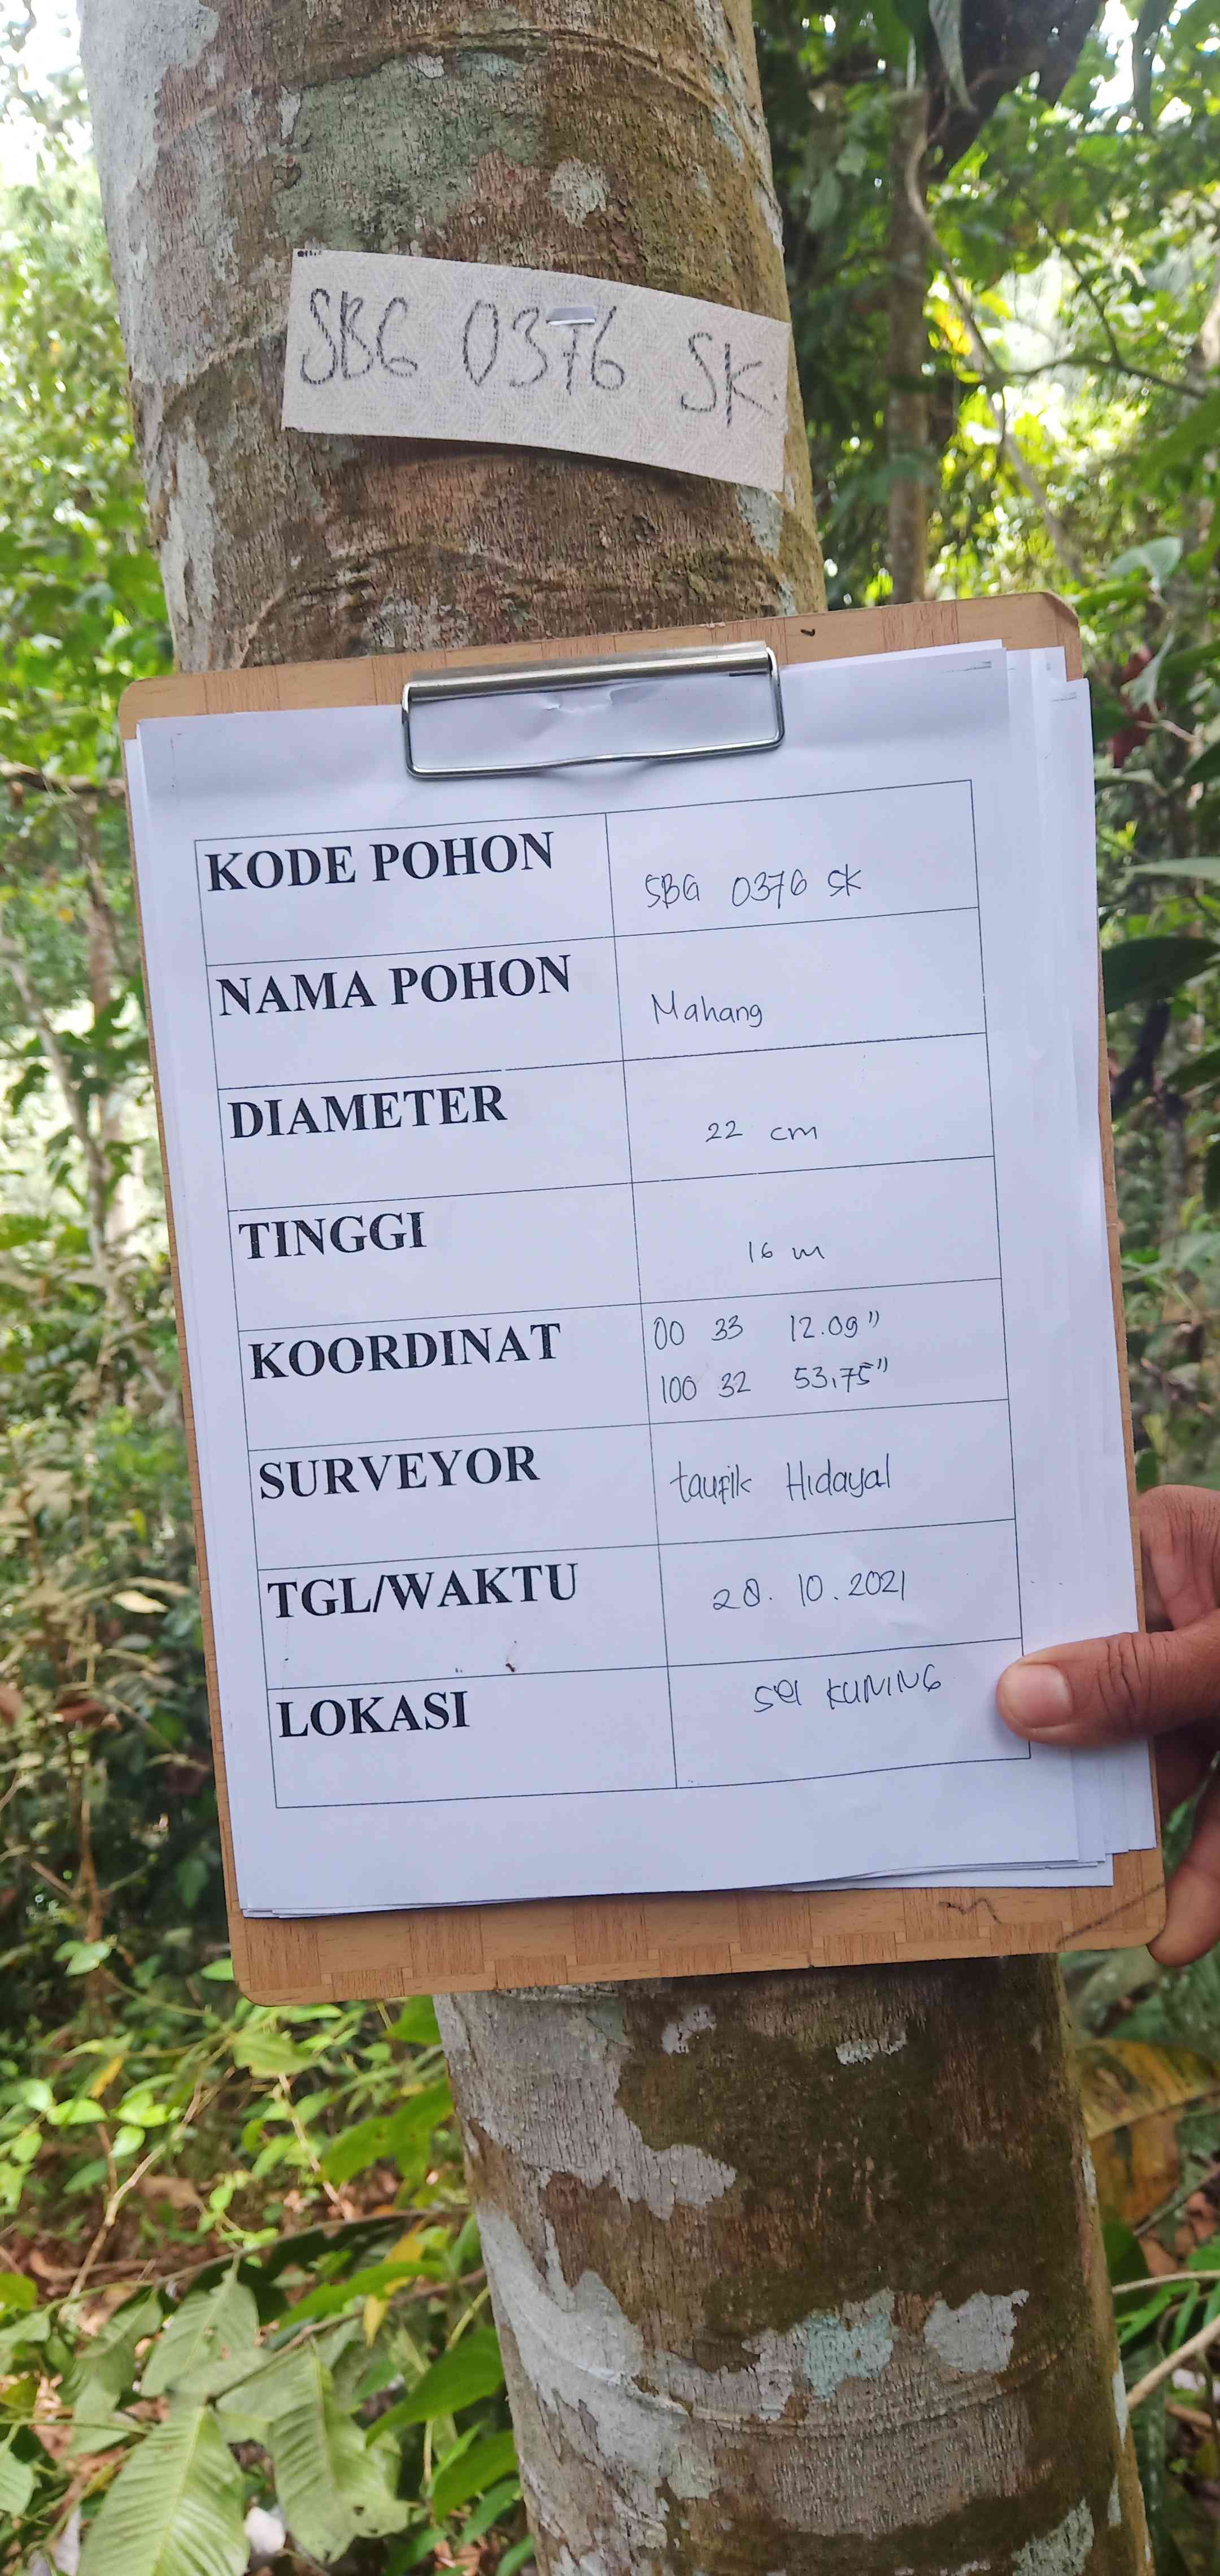 SBG 0376 SK.
KODE POHON SBG 0376 SK
NAMA POHON Mahang
DIAMETER 22 cm
TINGGI 16 m
KOORDINAT 00 33 12.09"
100 32 53,75"
SURVEYOR taufik Hidayal
TGL/WAKTU 28. 10. 2021
LOKASI SEI KUNING